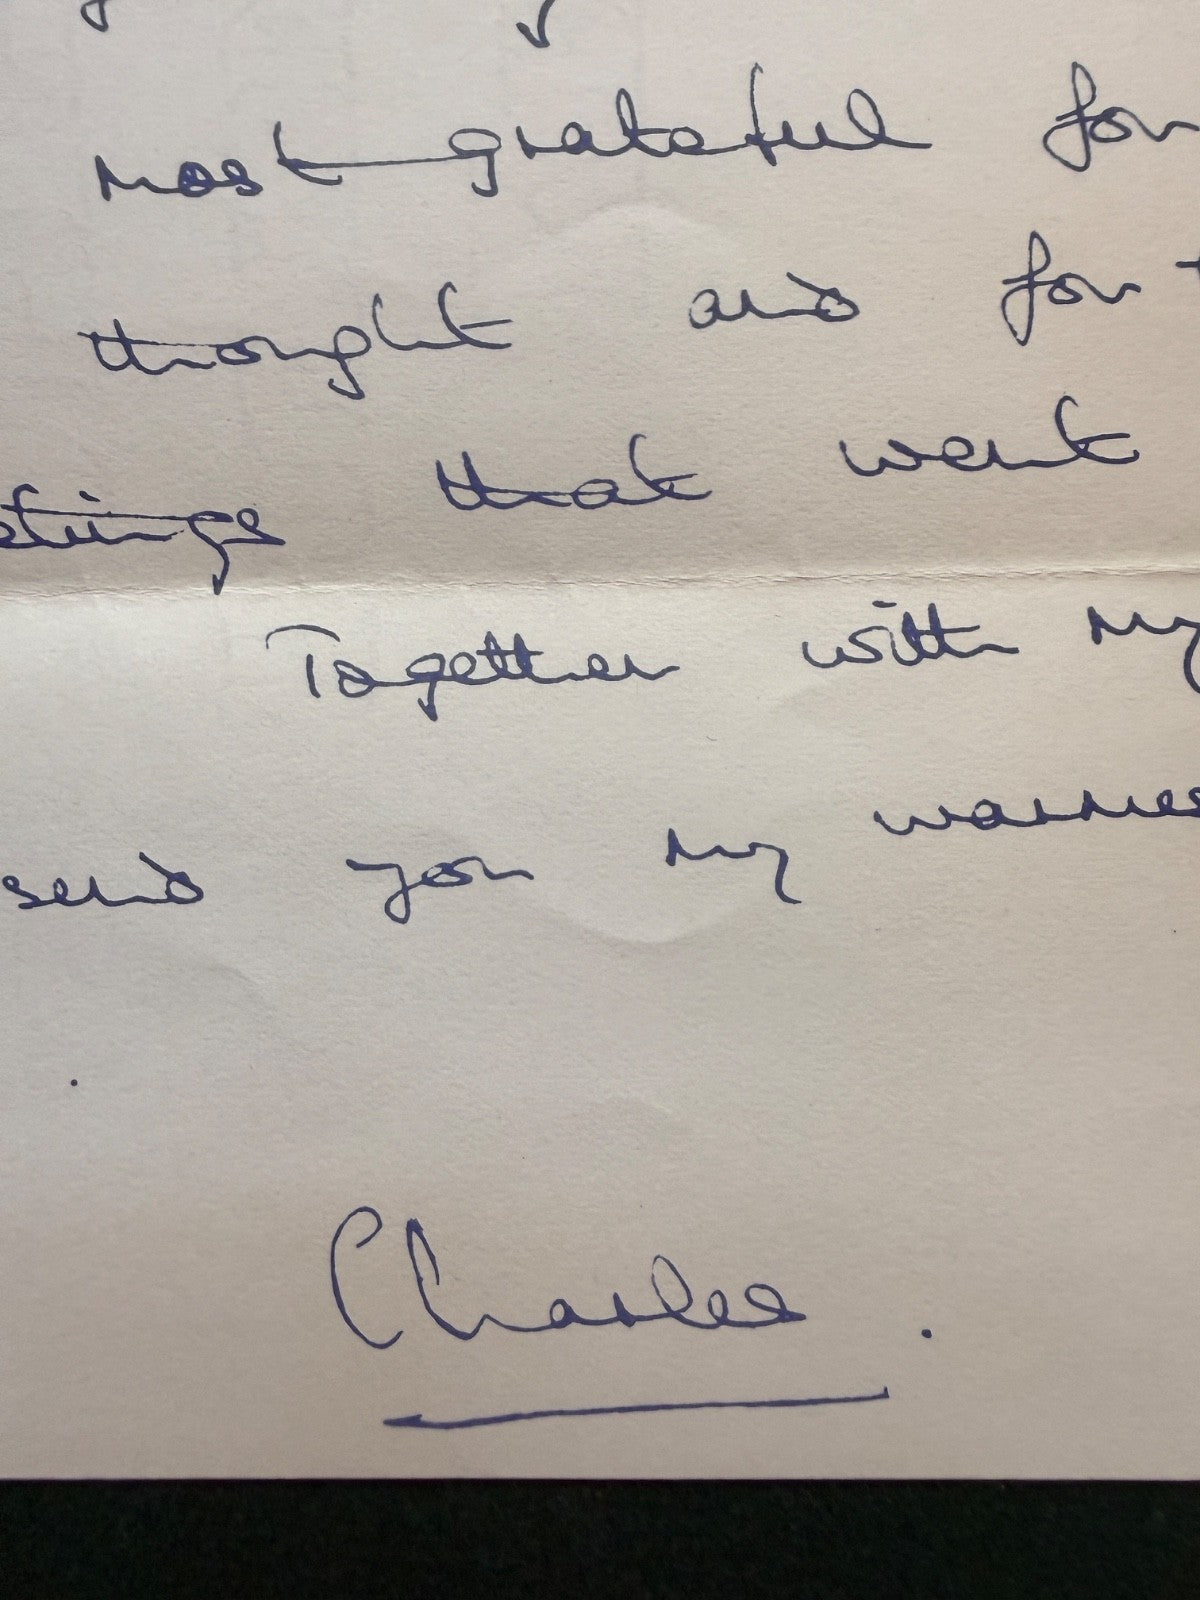 most grateful for
thought and for t
etings that went
Together with my
send you my warmes
Charles.